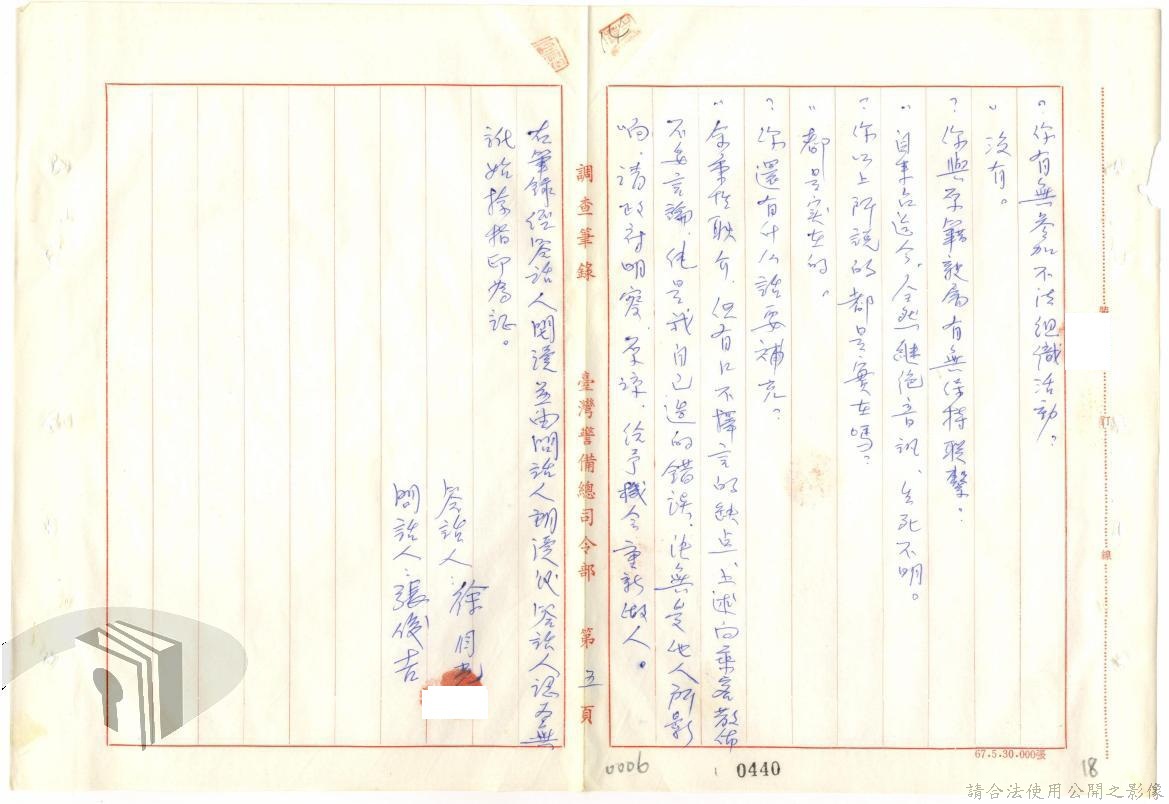 〃你有無參加不法組織活動？
〃沒有。
？你與原籍親屬有無保持聯繫？
〃自來台迄今，全然継绝音訊、生死不明。
？你以上所說的都是實在嗎？
〃都是实在的。
？你還有什么話要補充？
〃余秉性耿介，但有口不擇言的缺点，上述向乘客散佈
不妥言論，純是我自己造的錯误，決無受他人所影
响，請政府明察、原諒，给予機会重新做人。
調查筆錄 臺灣警備總司令部 第五頁
右筆錄经答話人閱讀並由問話人朗讀後答話人認為無
訛始捺指印為証。
答話人：徐
問話人：張俊吉
裝
訂
線
67.5.30.000張
0006
0440
18
請合法使用公開之影像